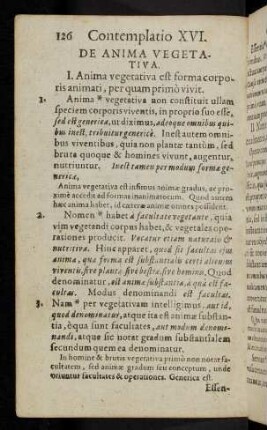 126 Contemplatio XVI.
DE ANIMA VEGETA-
TIVA.
I. Anima vegetativa est forma corpo-
ris animati, per quam primò vivit.
1. Anima * vegetativa non constituit ullam
speciem corporis viventis, in proprio suo esse,
sed est generica, ut diximus, adeoque omnibus qui-
bus inest, tribuitur genericè. Inest autem omni-
bus viventibus, quia non plantæ tantùm, sed
bruta quoque & homines vivunt, augentur,
nutriuntur. Inest tamen per modum formæ ge-
nericæ,
Anima vegetativa est infimus animæ gradus, ac pro-
ximè accedit ad formas inanimatorum. Quod autem
haec anima habet, id cæteræ animæ omnes possident.
2. Nomen * habet à facultate vegetante, quia
vim vegetandi corpus habet, & vegetales ope-
rationes producit. Vocatur etiam naturalis &
nutritiva. Hinc apparet, quod sit facultas ipsa
anima, qua forma est substantialis certi alicujus
viventis, sive planta, sive bestia, sive homina. Quod
denominatur, est anima substantia, à qua est fa-
cultas. Modus denominandi est facultas.
3. Nam * per vegetativam intelligimus, aut id,
quod denominatur, atque ita est animæ substan-
tia, èqua sunt facultates, aut modum denomi-
nandi, atque sic notat gradum substantialem
secundum quem ea denominatur.
In homine & brutis vegetativa primò non notat fa-
cultatem, sed animæ gradum seu conceptum, unde
facultates & operationes. Generica est.
Essen-